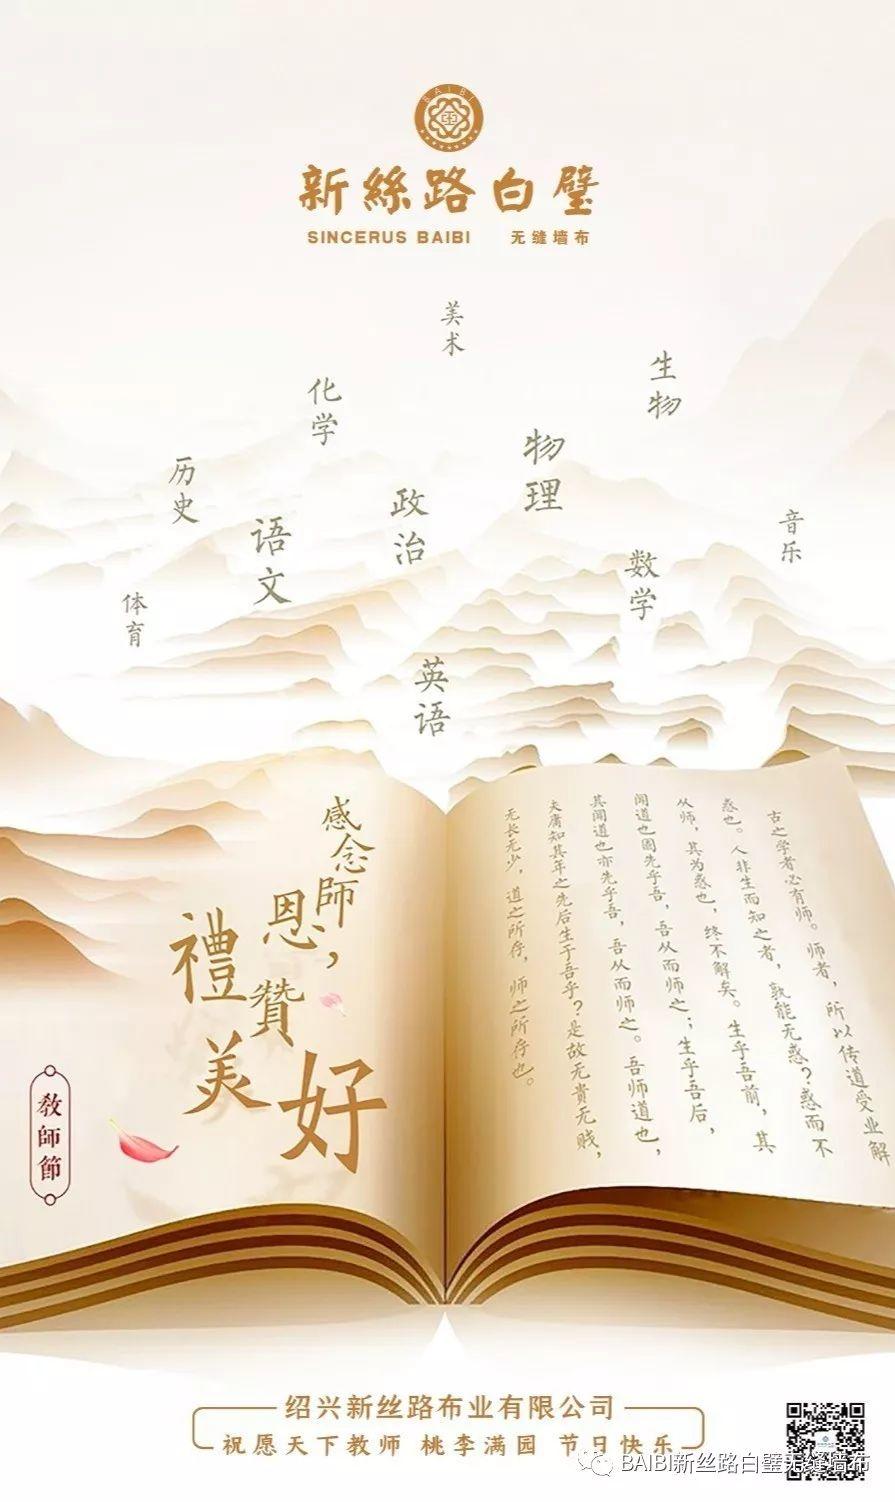 BAIBI
新絲路白璧
SINCERUS BAIBI 无缝墙布
美术
化学
生物
物理
历史
政治
语文
音乐
数学
体育
英语
感念師恩，
禮贊美好
古之学者必有师。师者，所以传道受业解
惑也。人非生而知之者，孰能无惑？惑而不
从师，其为惑也，终不解矣。生乎吾前，其
闻道也固先乎吾，吾从而师之；生乎吾后，
其闻道也亦先乎吾，吾从而师之。吾师道也，
夫庸知其年之先后生于吾乎？是故无貴无贱，
无长无少，道之所存，师之所存也。
教師節
绍兴新丝路布业有限公司
祝愿天下教师 桃李满园 节日快乐
BAIBI新丝路白璧无缝墙布